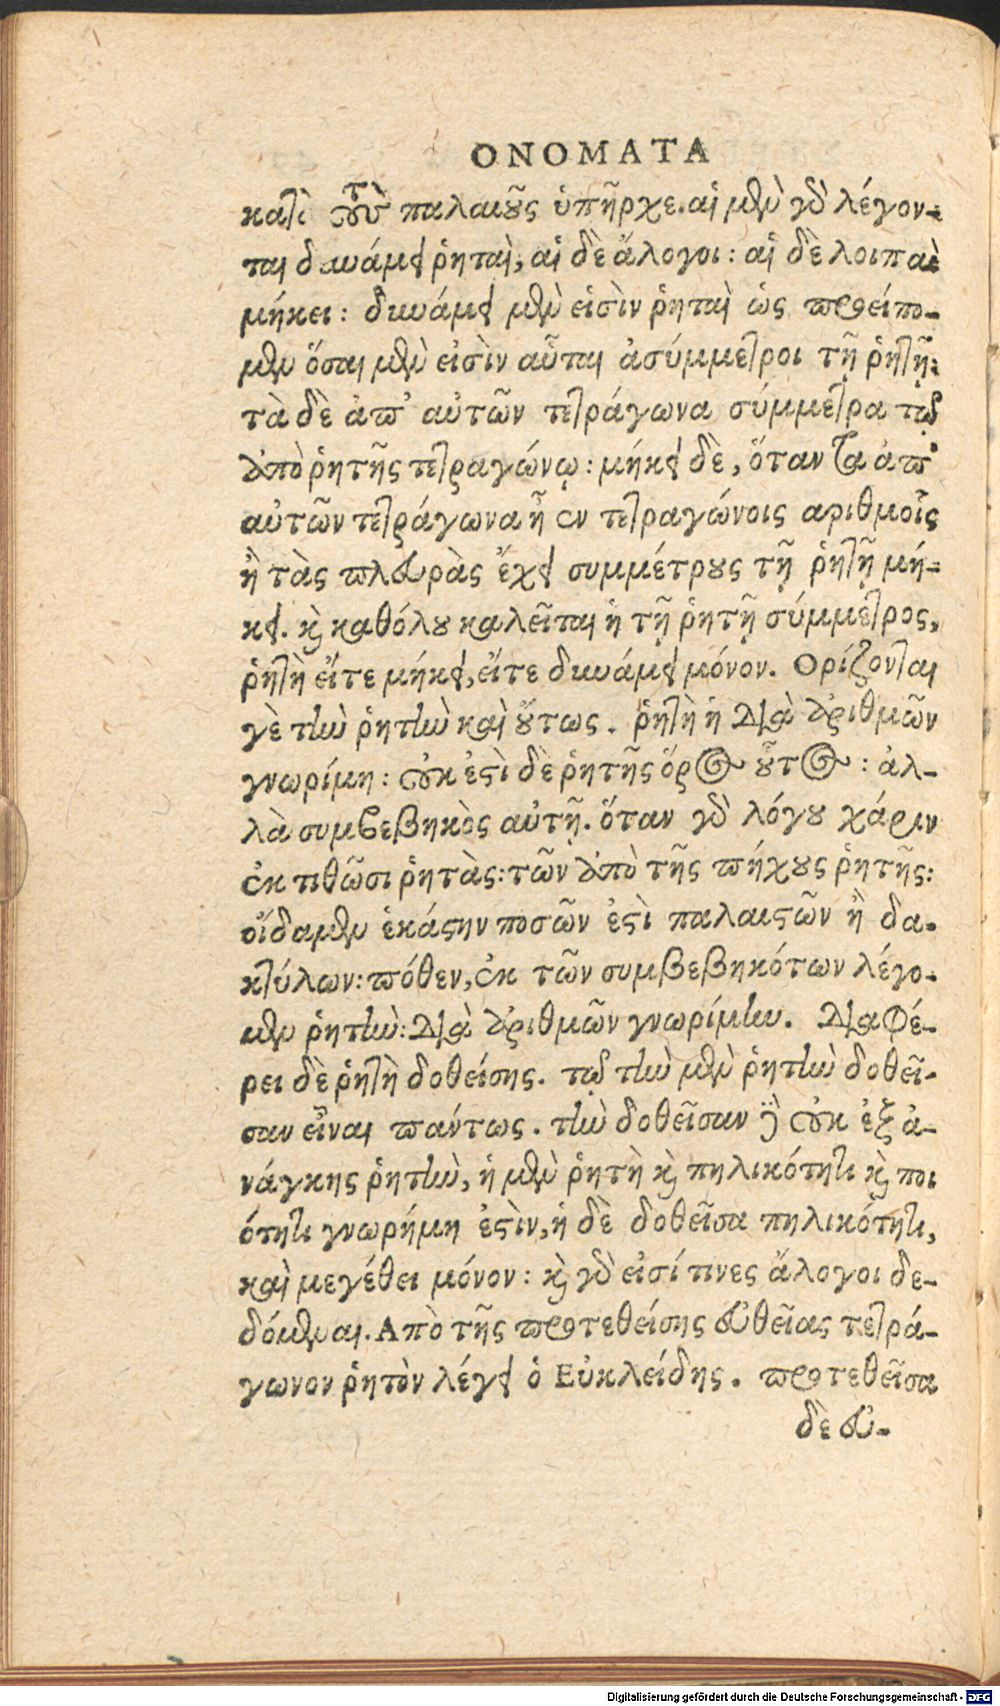 ΟΝΟΜΑΤΑ
κατὰ τοὺς παλαιοὺς ὑπῆρχε. αἱ μὲν γὰρ λέγον-
ται δυνάμει ῥηταὶ, αἱ δὲ ἄλογοι: αἱ δὲ λοιπαὶ
μήκει: δυνάμει μὲν εἰσὶν ῥηταὶ ὡς προείπο-
μεν ὅσαι μὲν εἰσὶν αὗται ἀσύμμετροι τῇ ῥητῇ:
τὰ δὲ ἀπ' αὐτῶν τετράγωνα σύμμετρα τῷ
ἀπὸ ῥητῆς τετραγώνῳ: μήκει δὲ, ὅταν τα ἀπ'
αὐτῶν τετράγωνα ἦ ἐν τετραγώνοις αριθμοῖς
ἢ τὰς πλευρὰς ἔχει συμμέτρους τῇ ῥητῇ μή-
κει. καὶ καθόλου καλεῖται ἡ τῇ ῥητῇ σύμμετρος,
ῥητὴ εἴτε μήκει, εἴτε δυνάμει μόνον. Ορίζονται
γὲ τὴν ῥητὴν καὶ οὕτως. ῥητὴ ἡ διὰ ἀριθμῶν
γνωρίμη: οὐκ ἐστὶ δὲ ῥητῆς ὅρος οὗτος: ἀλ-
λὰ συμβεβηκὸς αὐτῇ. ὅταν γὰρ λόγου χάριν
ἐκ τιθῶσι ῥητὰς: τῶν ἀπὸ τῆς πήχους ῥητῆς:
οἴδαμεν ἑκάστην ποσῶν ἐστὶ παλαιστῶν ἢ δα-
κτύλων: πόθεν, ἐκ τῶν συμβεβηκότων λέγο-
μεν ῥητὴν: διὰ ἀριθμῶν γνωρίμην. Διαφέ-
ρει δὲ ῥητὴ δοθείσης. τῷ τὴν μὲν ῥητὴν δοθεῖ-
σαν εἶναι πάντως. τὴν δοθεῖσαν δὲ οὐκ ἐξ ἀ-
νάγκης ῥητὴν, ἡ μὲν ῥητὴ καὶ πηλικότητι καὶ ποι
ότητι γνωρήμη ἐστὶν, ἡ δὲ δοθεῖσα πηλικότητι,
καὶ μεγέθει μόνον: καὶ γὰρ εἰσί τινες ἄλογοι δε-
δόμεναι. Απὸ τῆς προτεθείσης εὐθείας τετρά-
γωνον ῥητὸν λέγει ὁ Εὐκλείδης. προτεθεῖσα
δὲ εὐ-
Digitalisierung gefördert durch die Deutsche Forschungsgemeinschaft - DFG